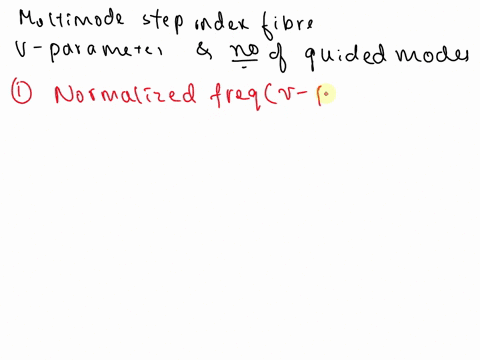 Multimode step index fibre
V-parameter & no of guided modes
① Normalized freq (v-p